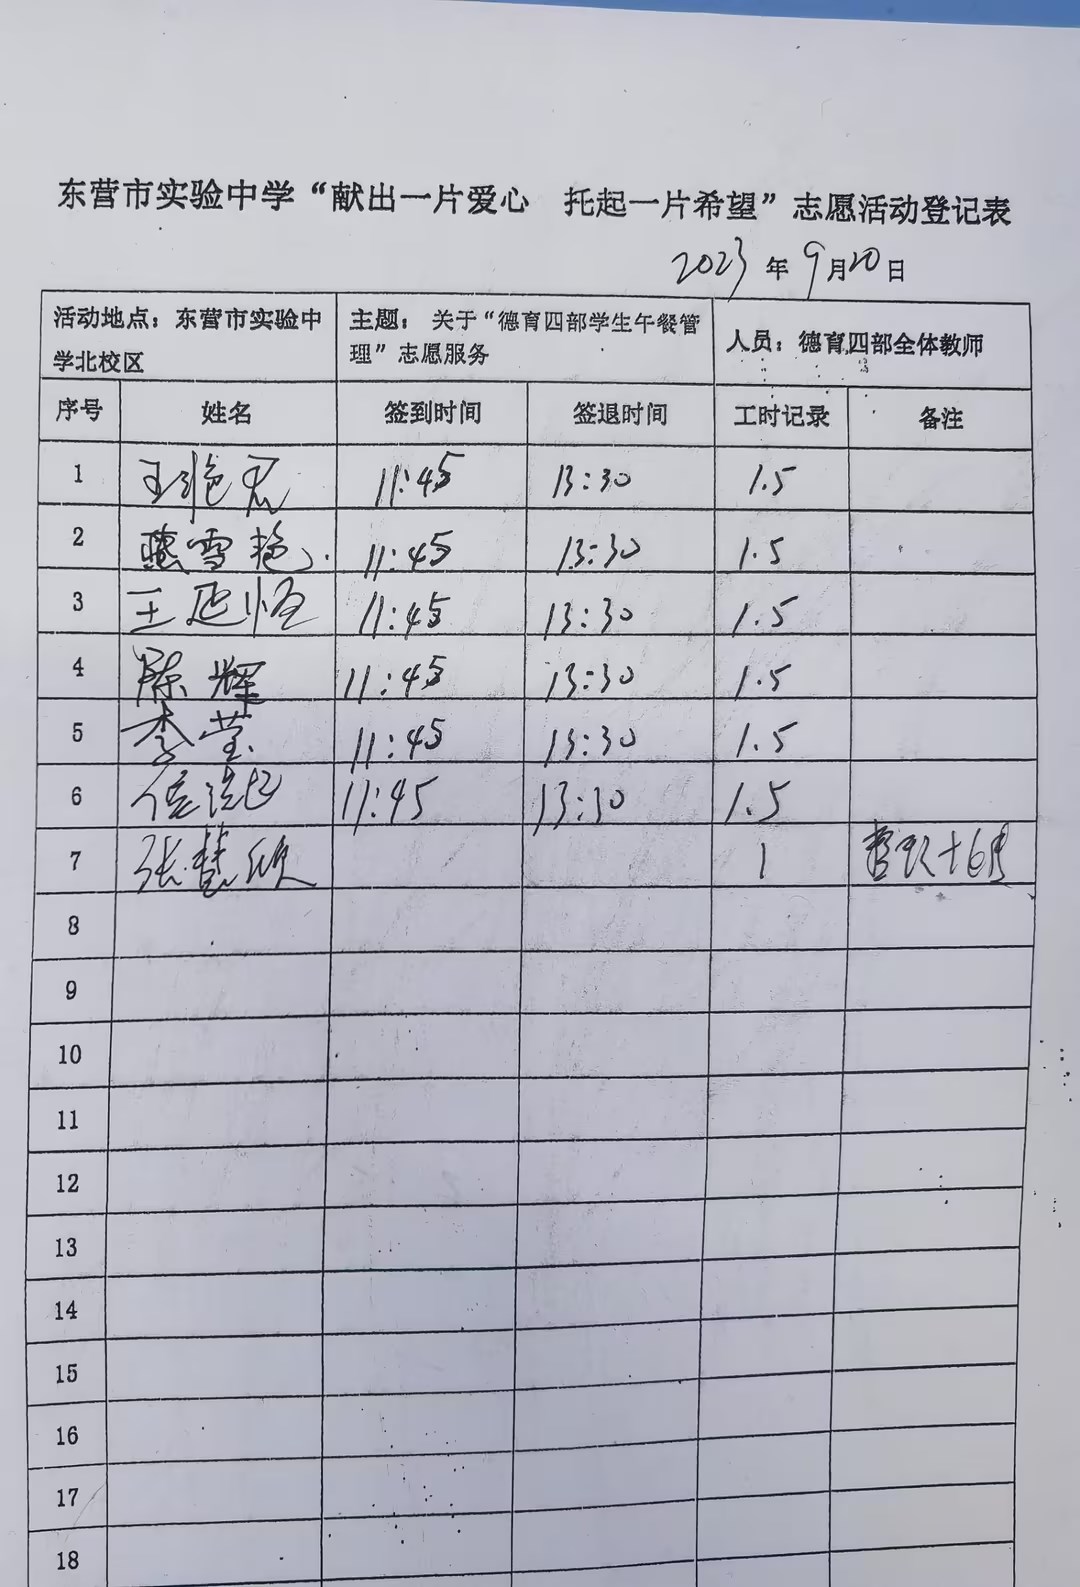 东营市实验中学“献出一片爱心 托起一片希望”志愿活动登记表
2023年9月20日
活动地点：东营市实验中学北校区 主题：关于“德育四部学生午餐管理”志愿服务 人员：德育四部全体教师
序号 姓名 签到时间 签退时间 工时记录 备注
1 王艳君 11:45 13:30 1.5
2 臧雪艳 11:45 13:30 1.5
3 王延恒 11:45 13:30 1.5
4 陈辉 11:45 13:30 1.5
5 李莹 11:45 13:30 1.5
6 11:45 13:30 1.5
7 张慧欣 1
8
9
10
11
12
13
14
15
16
17
18